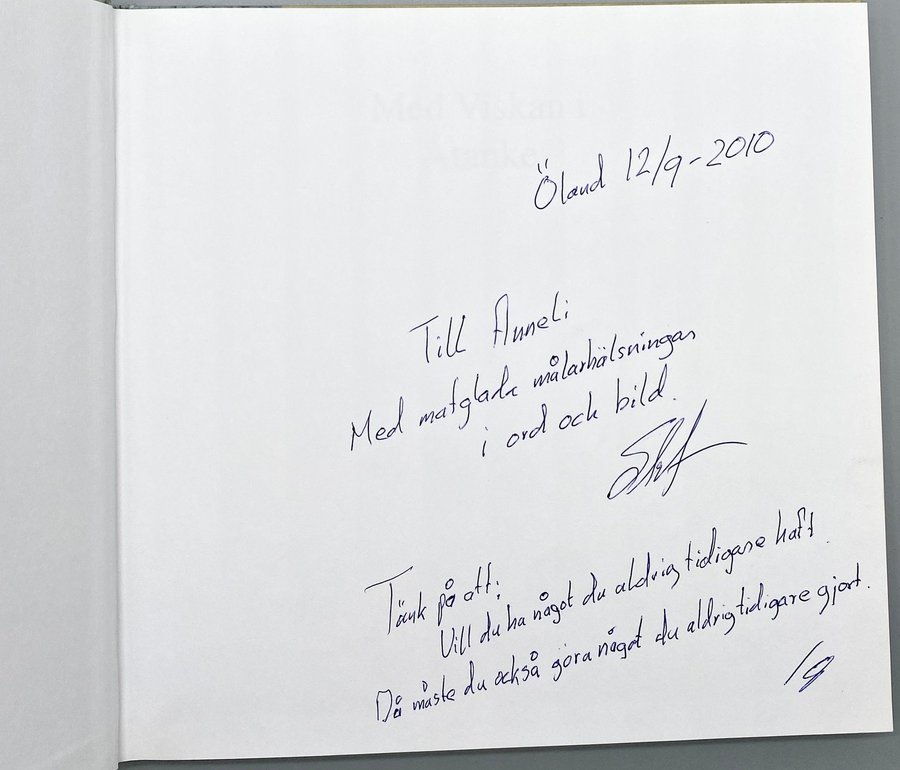 Öland 12/9-2010
Till Anneli
Med matglada målarhälsningar
i ord och bild.
Tänk på att:
Vill du ha något du aldrig tidigare haft.
Då måste du också göra något du aldrig tidigare gjort.